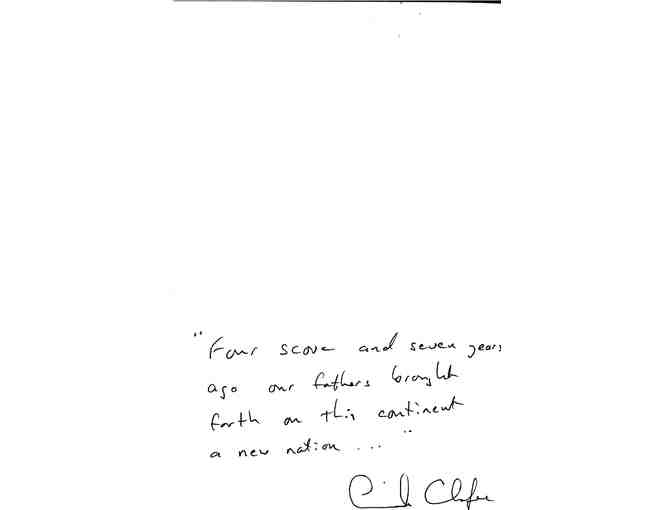 "Four score and seven years
ago our fathers brought
forth on this continent
a new nation ..."